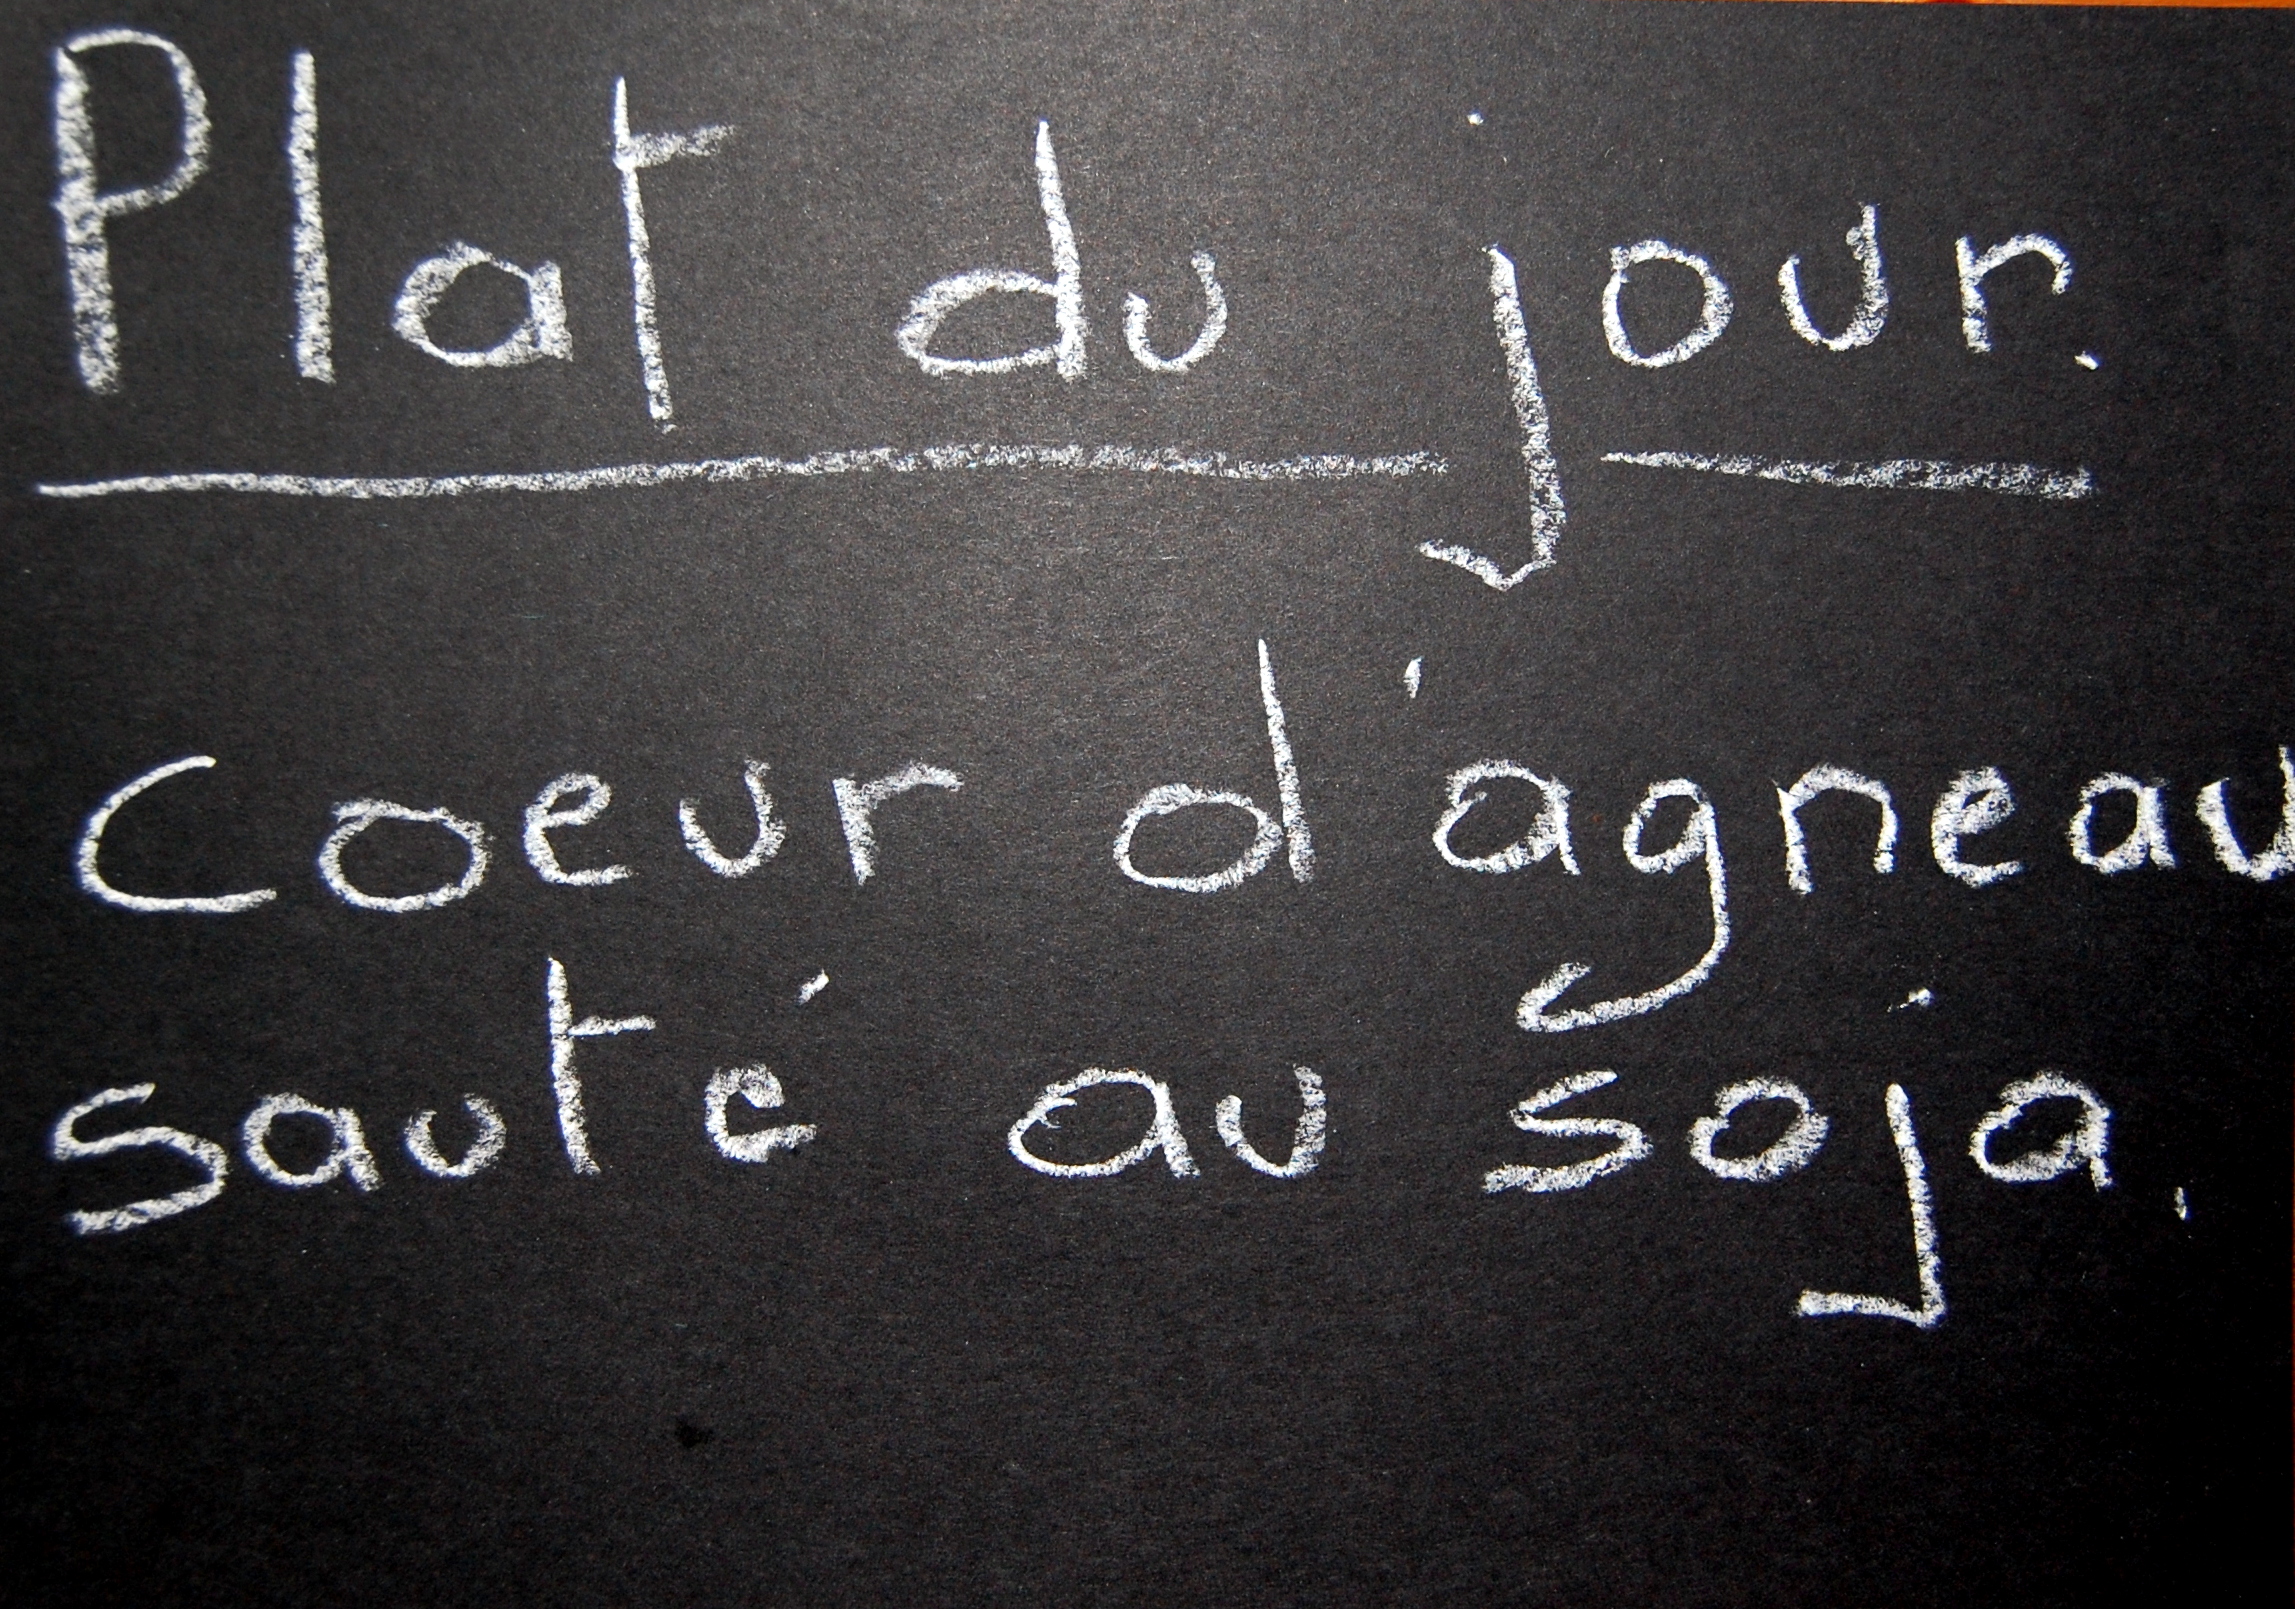 Plat du jour.
Coeur d'agneau
sauté au soja.